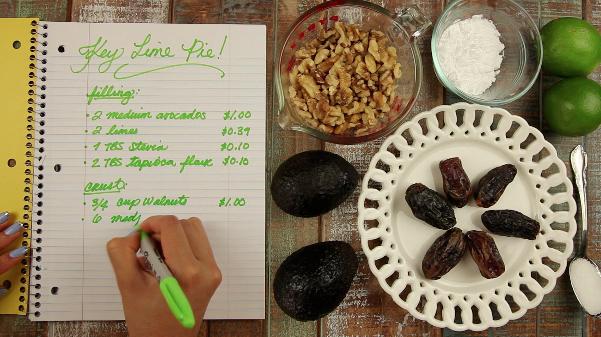 Key Lime Pie!
filling:
• 2 medium avocados $1.00
• 2 limes $0.39
• 1 TBS stevia $0.10
• 2 TBS tapioca flour $0.10
crust:
• 3/4 cup walnuts $1.00
• 6 med